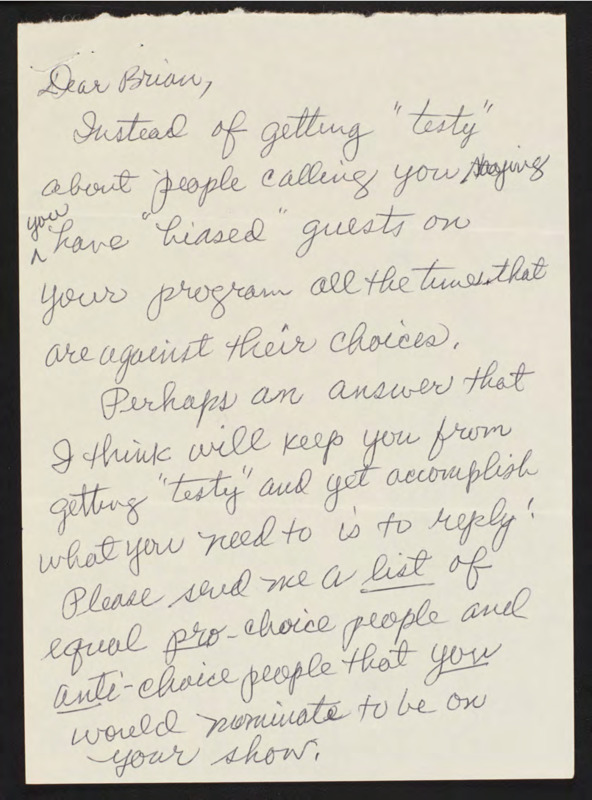 Dear Brian,
Instead of getting "testy"
about people calling you, saying
you
^ have "biased" guests on
your program all the time that
are against their choices.
Perhaps an answer that
I think will keep you from
getting "testy" and yet accomplish
what you need to is to reply!
Please send me a list of
equal pro-choice people and
anti-choice people that you
would nominate to be on
your show.